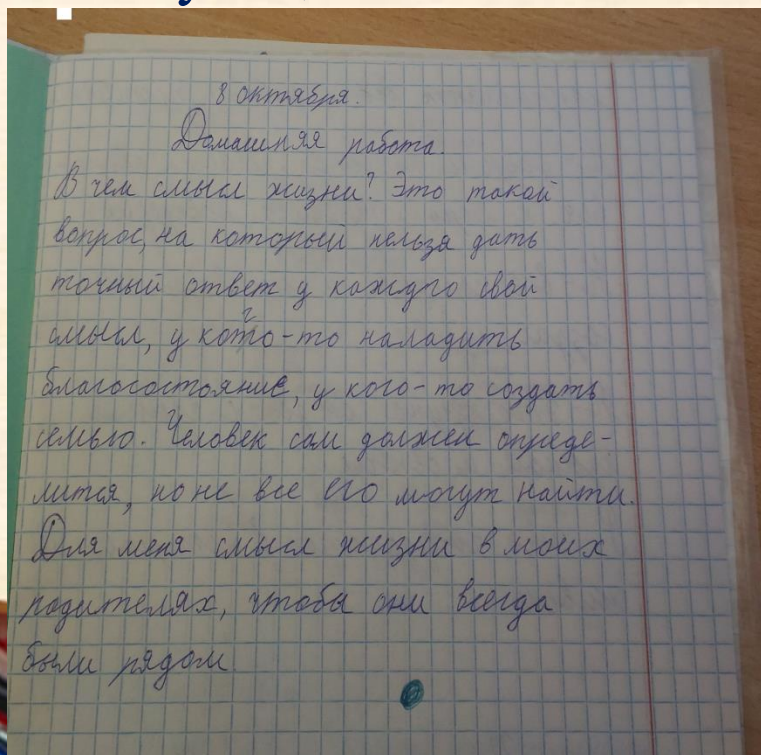 8 октября.
Домашняя работа.
В чем смысл жизни? Это такой
вопрос, на который нельзя дать
точный ответ у каждого свой
смысл, у кого-то наладить
благосостояние, у кого-то создать
семью. Человек сам должен опреде-
лится, но не все его могут найти.
Для меня смысл жизни в моих
родителях, чтобы они всегда
были рядом.